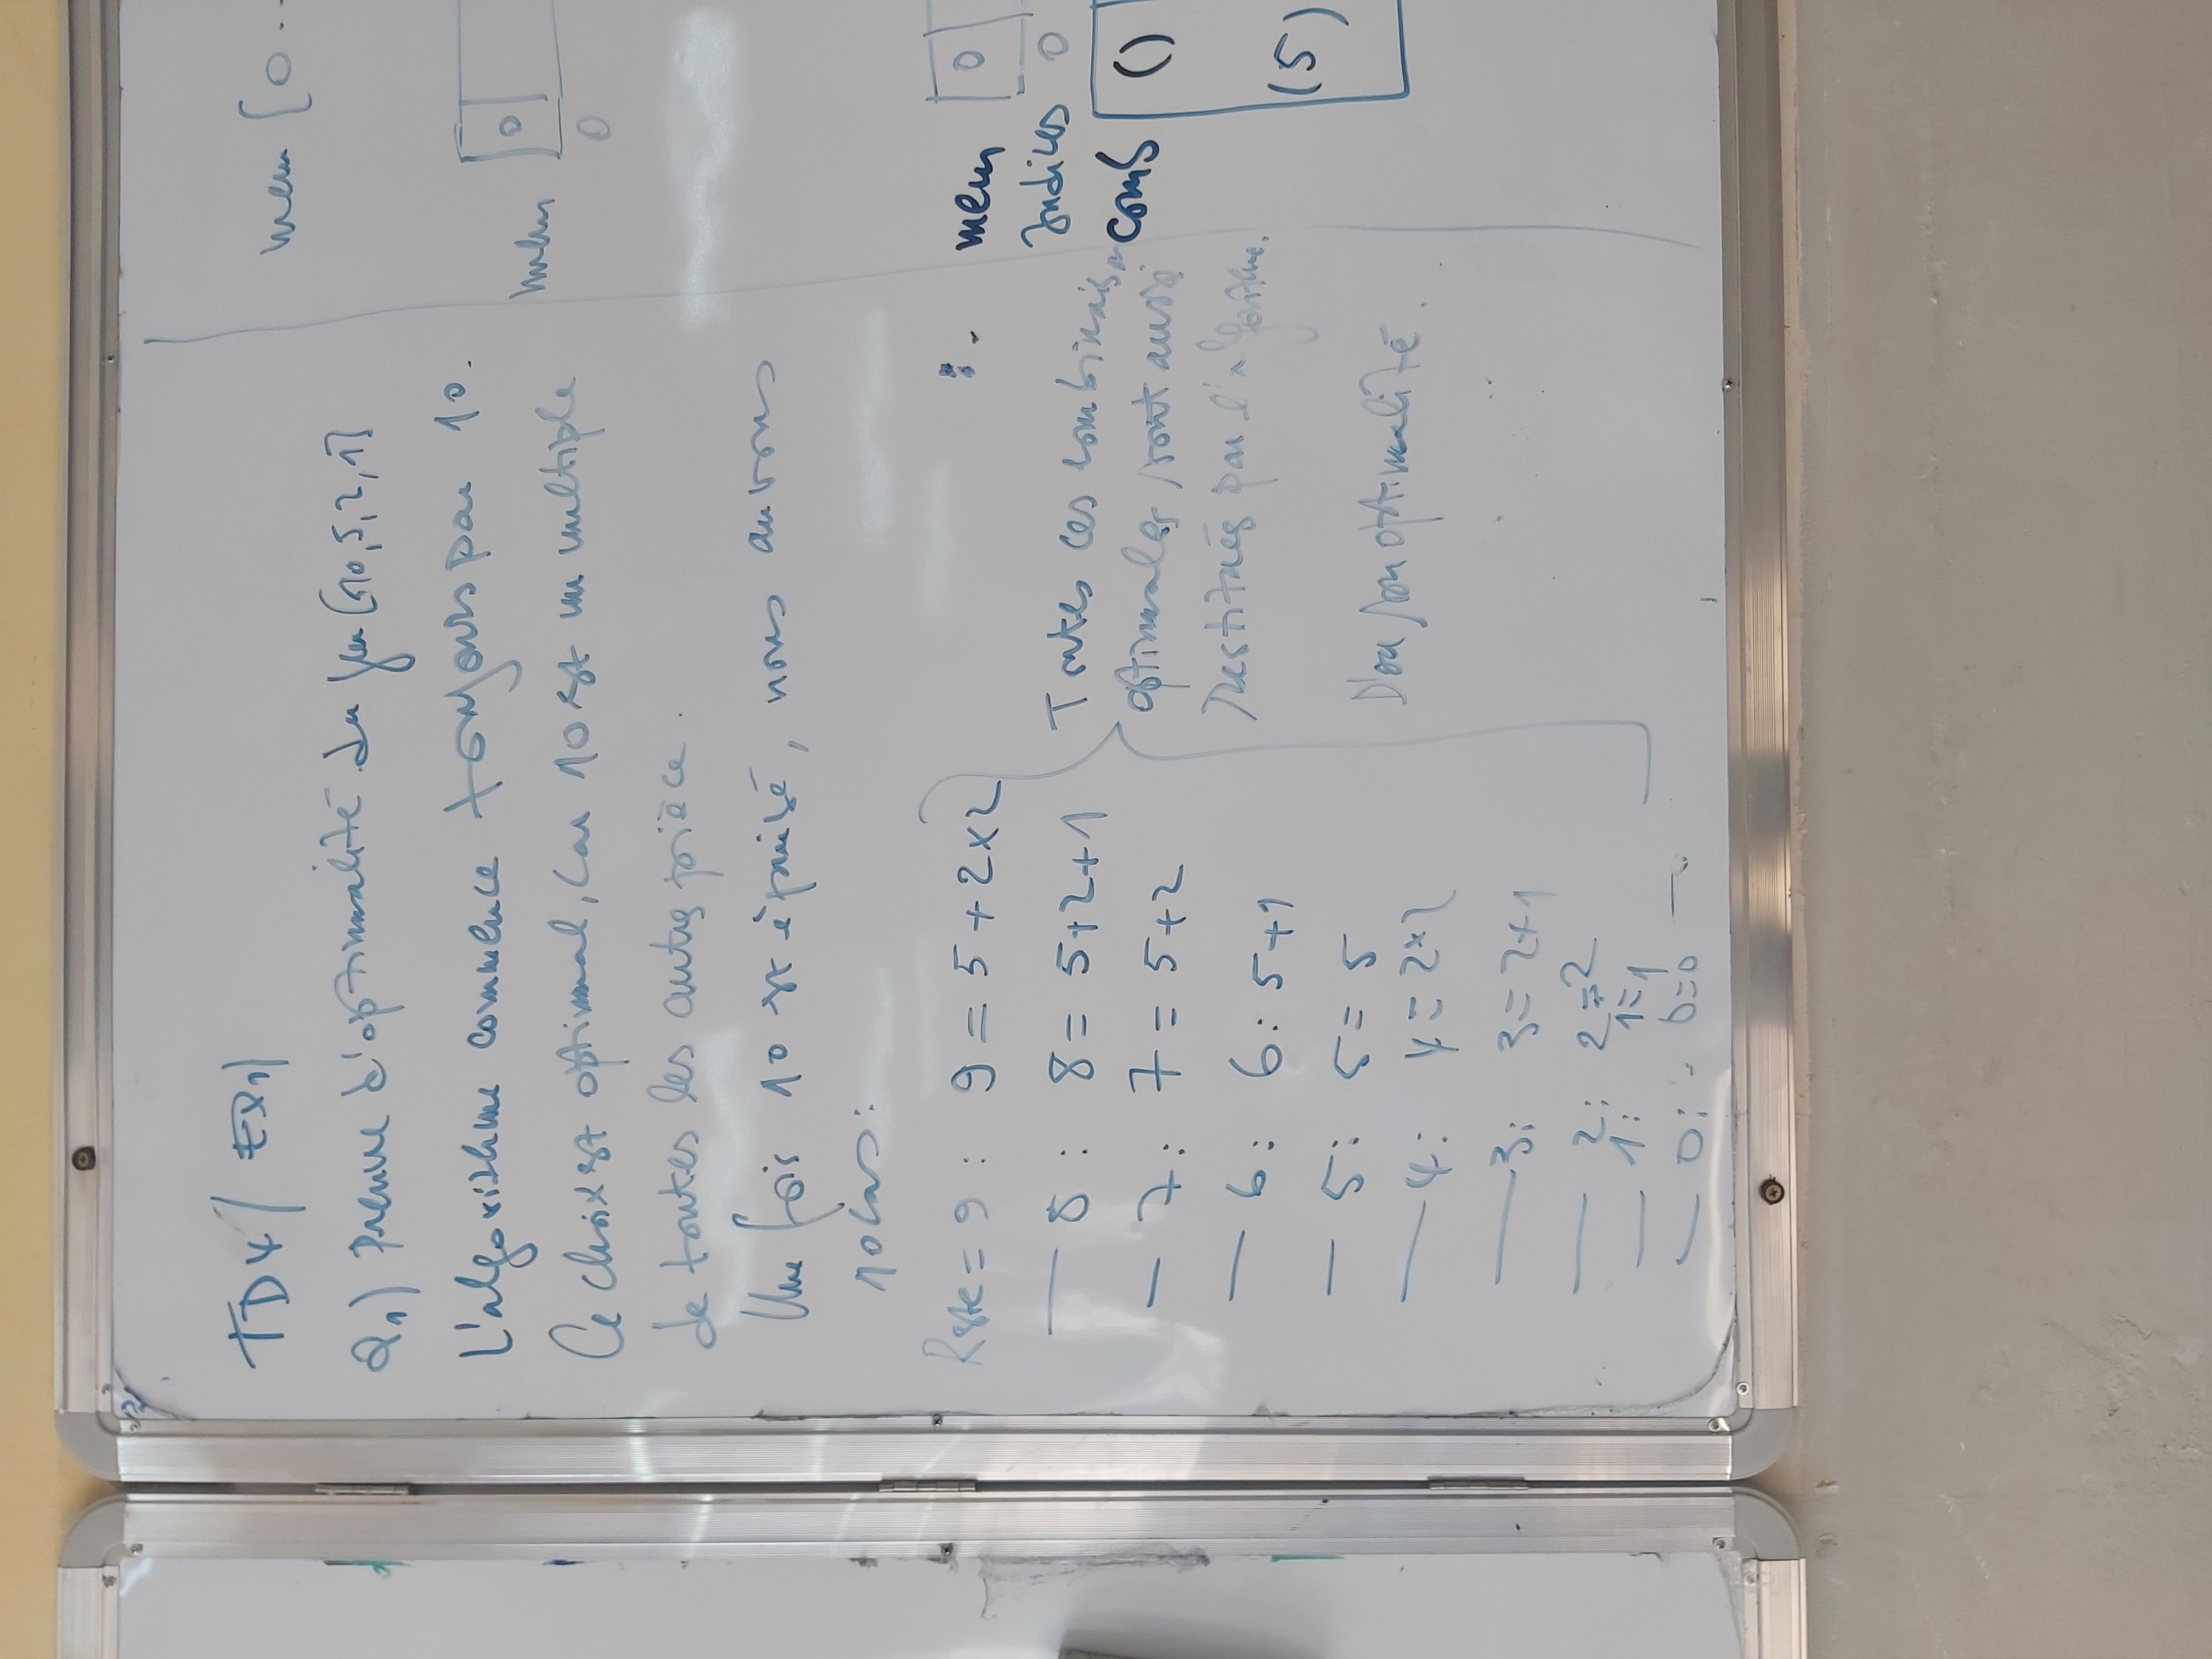 TD4/ EX1)
Q1) Preuve d'optimalité du jeu [10,5,2,1]
L'algorithme commence toujours par 10.
Ce choix est optimal, car 10 est un multiple
de toutes les autres pièce.
Une fois 10 est épuisé, nous aurons
10 cas:
Reste = 9 : 9 = 5+2x2
— 8 : 8 = 5+2+1
— 7 : 7 = 5+2
— 6 : 6 : 5+1
— 5 : 5 = 5
— 4 : 4 = 2x2
— 3 : 3 = 2+1
— 2 : 2 = 2
— 1 : 1=1
— 0 : - 0=0 —
Toutes ces
optimales, sont aussi
restitués par l'algorithme.
D'où son optimalité.
mem [0..
mem 0
0
mem 0
Indices 0
comb ()
(5)